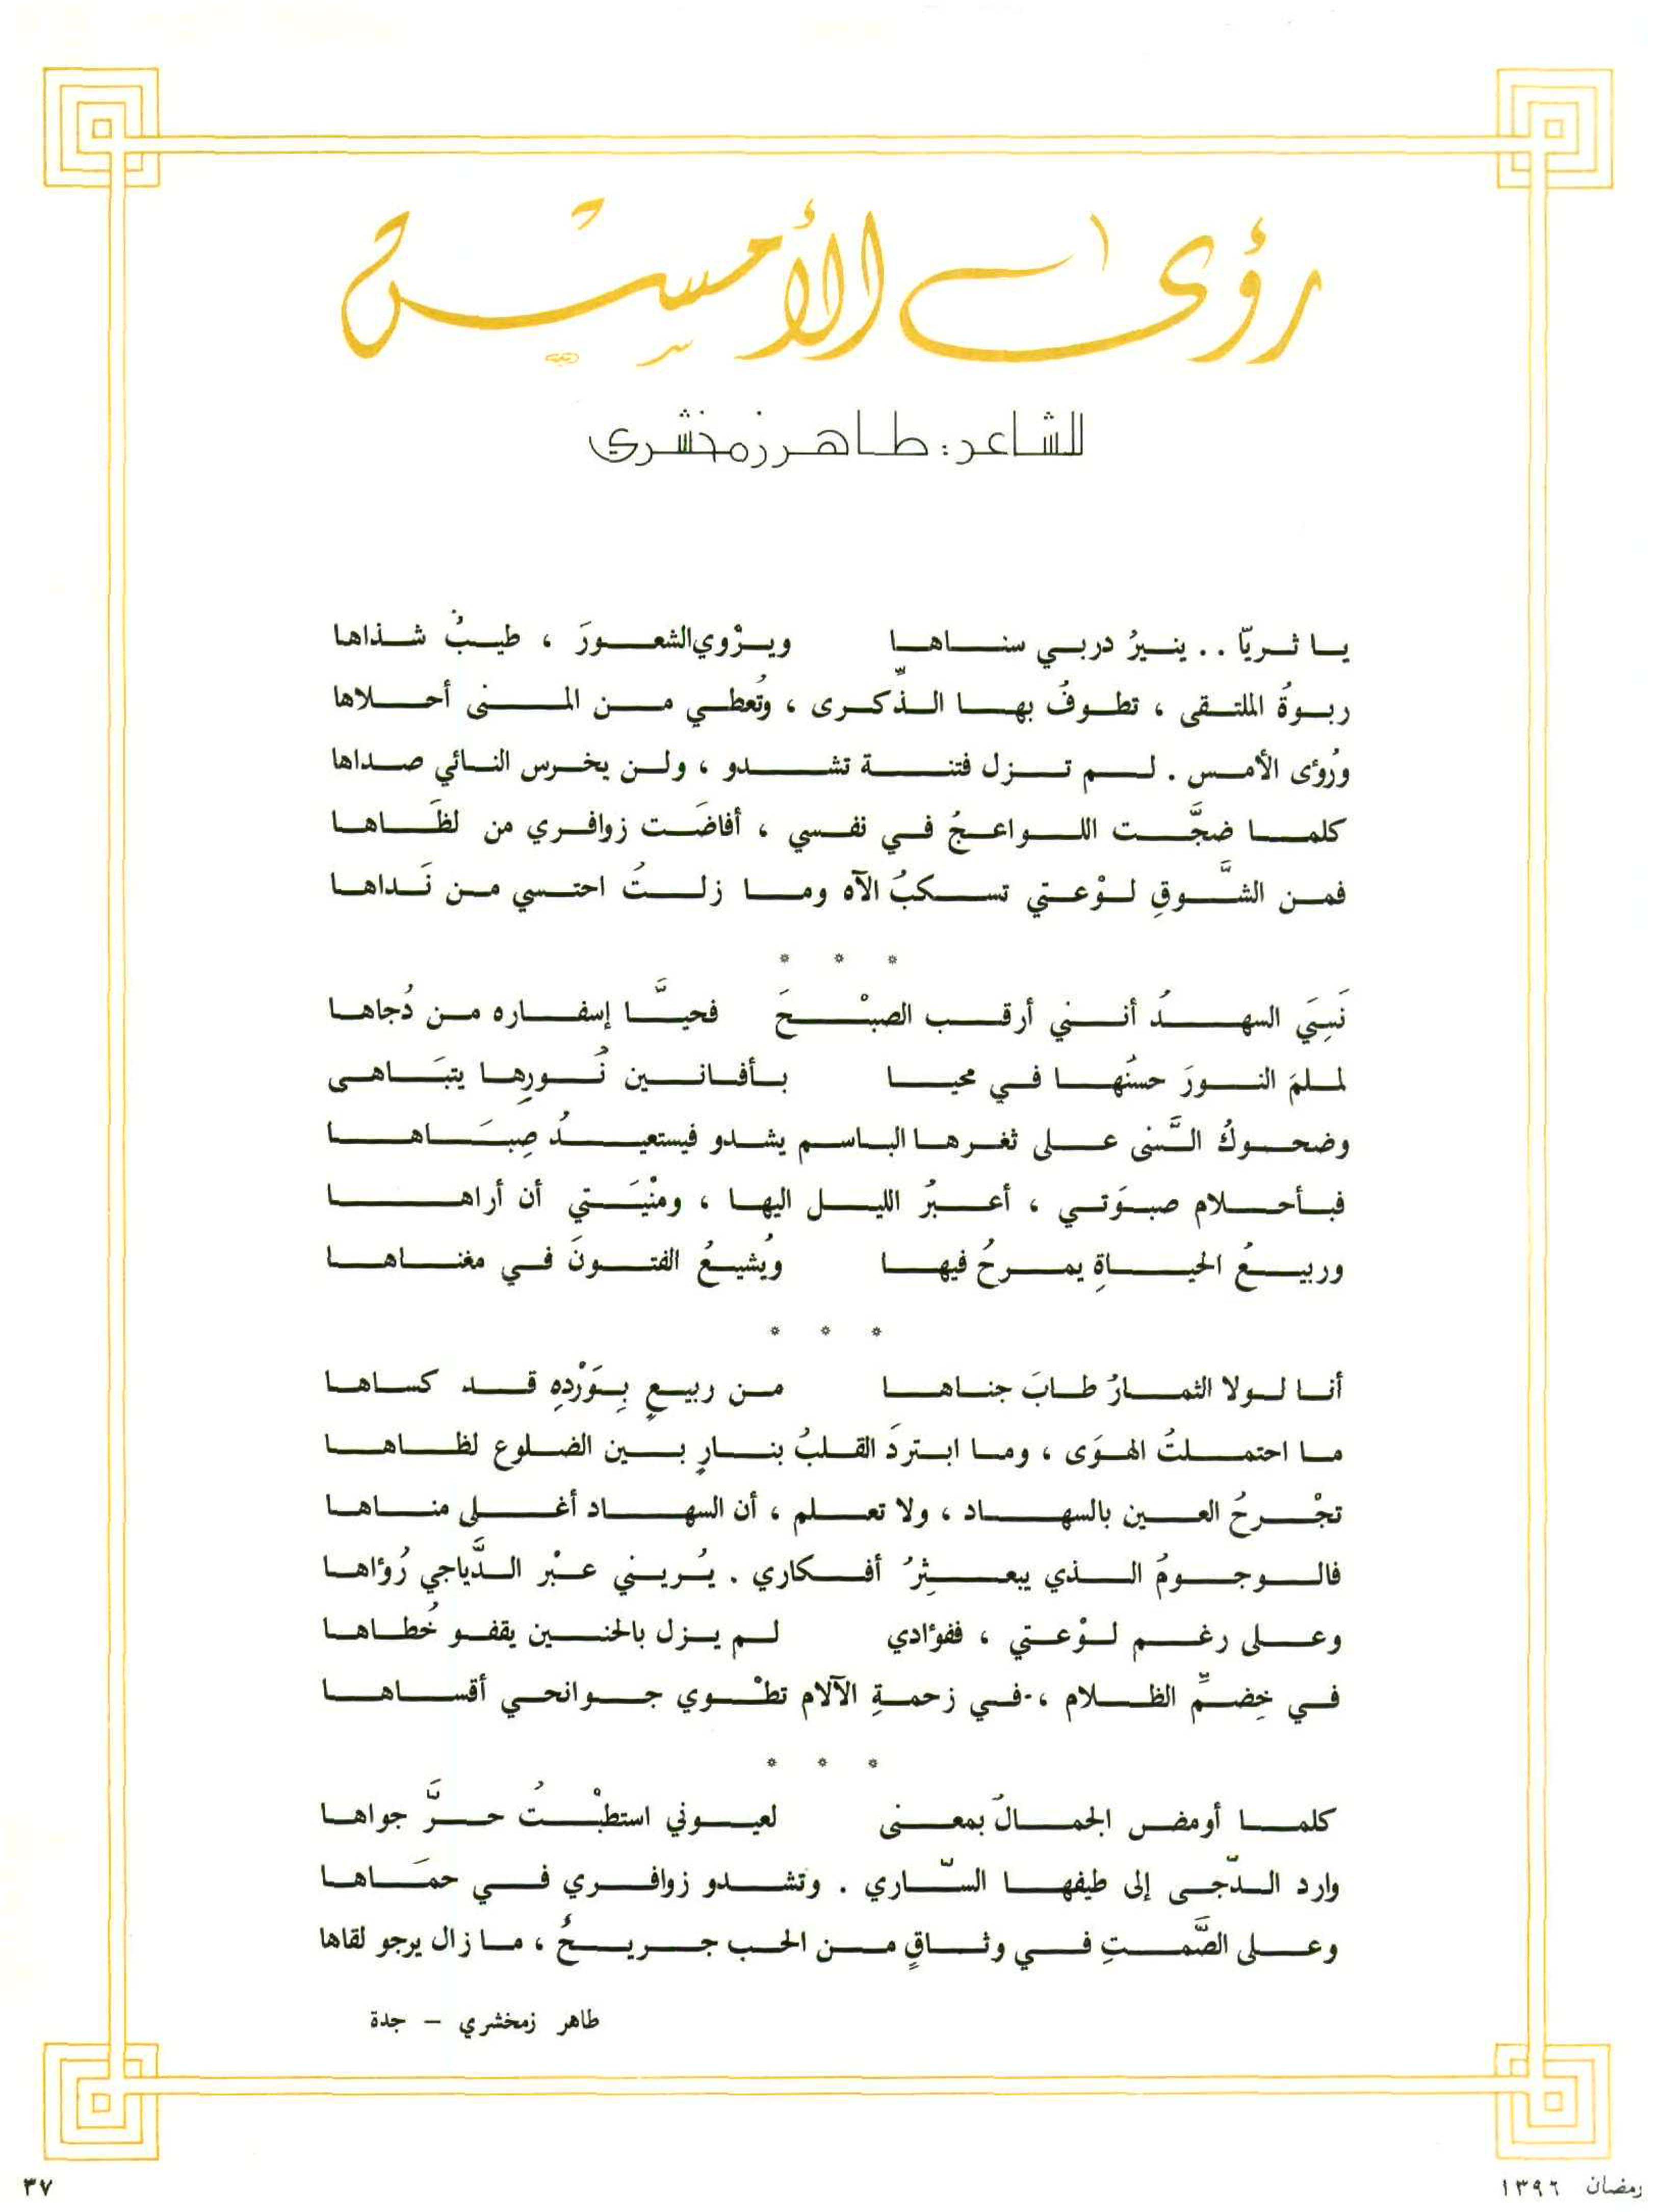 رؤى الأمسية
للشاعر : طاهر زمخشري
يا ثريّا .. ينيرُ دربي سناها ويرْوي الشعورَ ، طيبُ شذاها
ربوةُ الملتقى ، تطوفُ بها الذّكرى ، وتُعطي من المنى أحلاها
ورُوى الأمس . لم تزل فتنة تشدو ، ولن يخرس النائي صداها
كلما ضجَّت اللواعجُ في نفسي ، أفاضَت زوافري من لظَاها
فمن الشَّوقِ لوْعتي تسكبُ الآه وما زلتُ احتسي من نَداها
* * *
نَسِيَ السهدُ أنني أرقب الصبْحَ فحيَّا إسفاره من دُجاها
لملمَ النورَ حسنُها في محيا بأفانين نُورِها يتبَاهى
وضحوكُ السَّنى على ثغرها الباسم يشدو فيستعيدُ صِبَاها
فبأحلام صبوَتي ، أعبرُ الليل اليها ، ومنْيَتي أن أراها
وربيعُ الحياةِ يمرحُ فيها ويُشيعُ الفتونَ في مغناها
* * *
أنا لولا الثمارُ طابَ جناها من ربيعٍ بِوَرْدِهِ قد كساها
ما احتملتُ الهوَى ، وما ابتردَ القلبُ بنارٍ بين الضلوع لظاها
تجْرحُ العين بالسهاد ، ولا تعلم ، أن السهاد أغلى مناها
فالوجومُ الذي يبعثِرُ أفكاري . يُريني عبْر الدَّياجي رُؤاها
وعلى رغم لوْعتي ، ففؤادي لم يزل بالحنين يقفو خُطاها
في خِضمِّ الظلام ، في زحمةِ الآلام تطْوي جوانحي أقساها
* * *
كلما أومض الجمالُ بمعنى لعيوني استطبْتُ حرَّ جواها
وارد الدّجى إلى طيفها السّاري . وتشدو زوافري في حمَاها
وعلى الصَّمتِ في وثاقٍ من الحب جريحُ ، ما زال يرجو لقاها
طاهر زمخشري – جدة
رمضان ١٣٩٦
٣٧